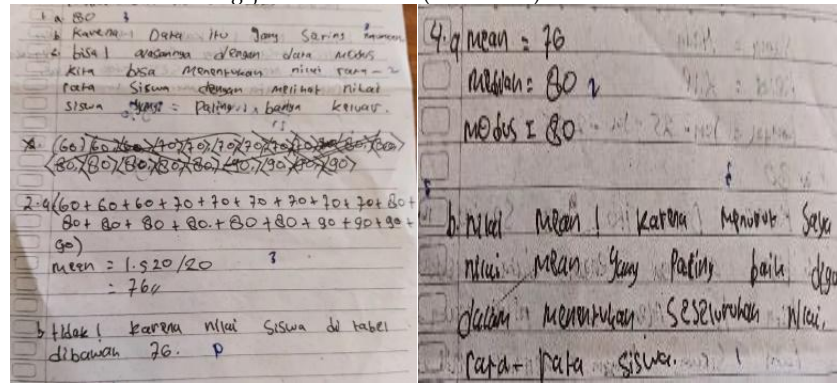 1. a 80 3
b Karena Data itu yang Sering
c. bisa! alasannya dengan data modus
kita bisa menentukan nilai rata-2
rata siswa dengan melihat nilai
siswa paling banya keluar.
2.a (60 + 60 + 60 + 70 + 70 + 70 + 70 + 70 + 70 + 80 +
80 + 80 + 80 + 80 + 80 + 80 + 90 + 90 + 90 +
90)
mean = 1.520/20 3
= 76
b tidak! karena nilai siswa di tabel
dibawah 76.
4. a mean = 76
median = 80 2
modus = 80
b. nilai mean! karena menurut saya
nilai mean yang paling baik
dalam menentukan seseluruhan nilai,
rata-rata siswa.